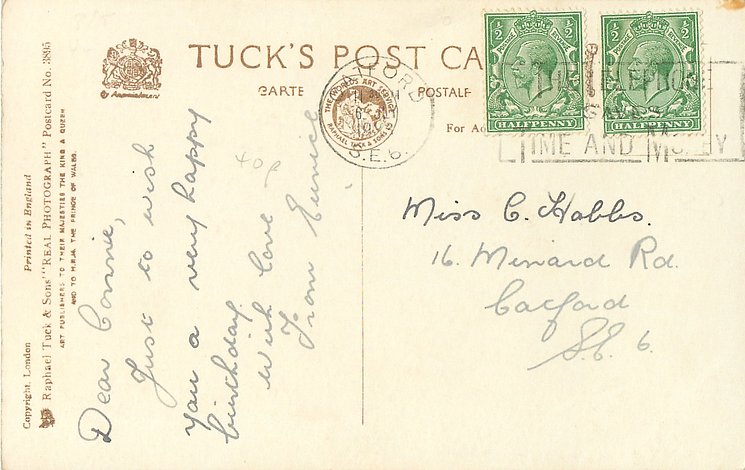 TUCK'S POST CA
CARTE
POSTALE
For Ad
THE WORLD'S ART SERVICE
RAPHAEL TUCK & SONS LTD
S.E.6.
TELEPHONE
TIME AND MONEY
1/2 1/2
HALFPENNY
1/2 1/2
HALFPENNY
Copyright, London
Printed in England
Raphael Tuck & Sons' "REAL PHOTOGRAPH" Postcard No. 3895
ART PUBLISHERS TO THEIR MAJESTIES THE KING & QUEEN
AND TO H.R.H. THE PRINCE OF WALES.
40p
Dear Connie,
Just to wish
you a very happy
birthday.
With love
From Eunice
Miss C. Hobbs.
16. Minard Rd.
Catford
S.E. 6.